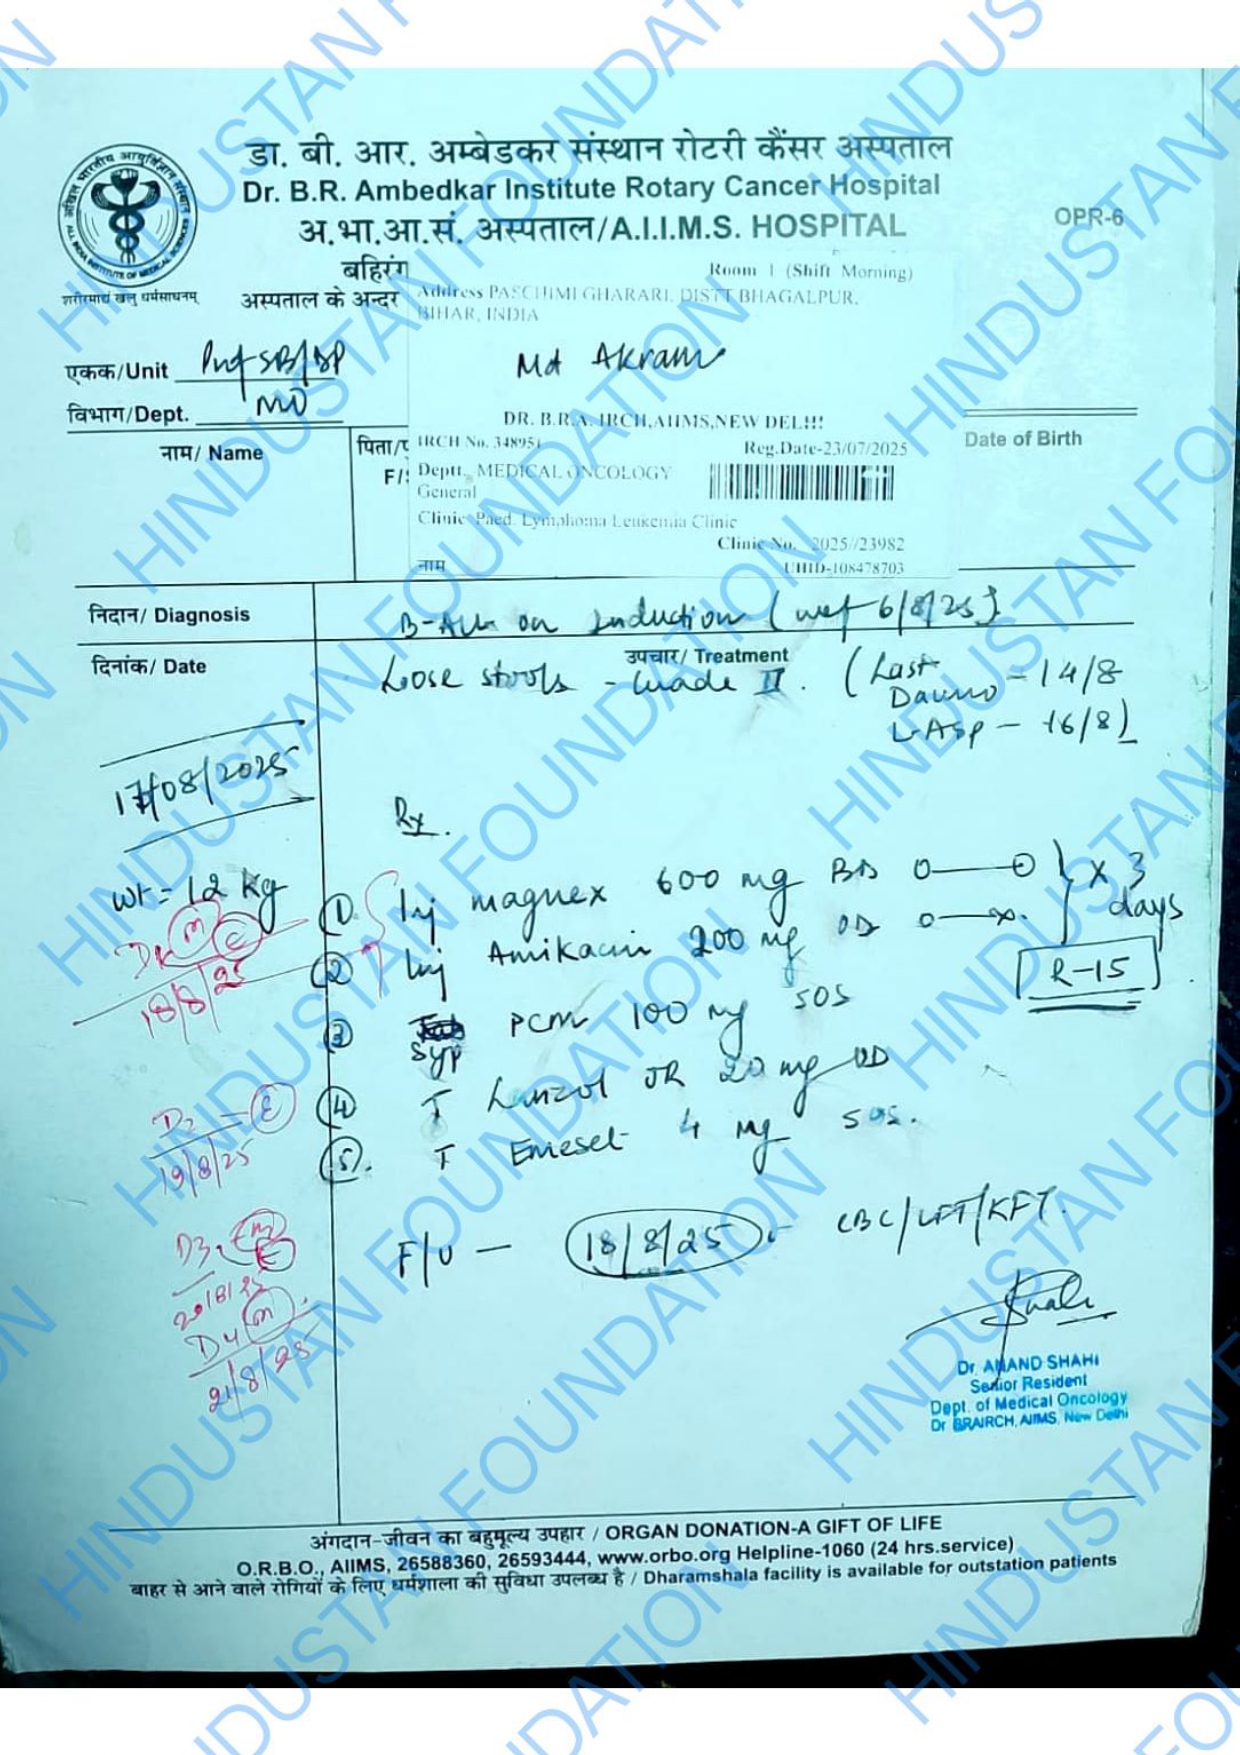 डा. बी. आर. अम्बेडकर संस्थान रोटरी कैंसर अस्पताल
Dr. B.R. Ambedkar Institute Rotary Cancer Hospital
अ.भा.आ.सं. अस्पताल/A.I.I.M.S. HOSPITAL
OPR-6
शरीरमाद्यं खलु धर्मसाधनम्
बहिरंग
अस्पताल के अन्दर
Room 1 (Shift Morning)
Address PASCHIMI GHARARI, DISTT BHAGALPUR,
BIHAR, INDIA
Md Akram
एकक/Unit Prof SB/DP
विभाग/Dept. MO
DR. B.R.A. IRCH,AIIMS,NEW DELHI
IRCH No. 348951
Reg.Date-23/07/2025
Deptt. MEDICAL ONCOLOGY
General
Clinic Paed. Lymphoma Leukemia Clinic
Clinic No. 2025//23982
नाम
UHID-108478703
नाम/ Name
F/
Date of Birth
निदान/ Diagnosis
B-ALL on Induction (wef 6/8/25)
दिनांक/ Date
उपचार/ Treatment
Lose stools - Grade II. (Last
Dauno - 14/8
L-Asp - 16/8)
17/08/2025
Rx.
wt = 12 kg
① Inj magnex 600 mg BD o—o } x 3 days
② Inj Amikacin 200 mg OD o—x.
R-15
D1 M E
18/8/25
③ Syp PCM 100 mg SOS
④ T Lanzol JR 20 mg OD
D2 - E
19/8/25
⑤. T Emeset 4 mg SOS.
D3, M E
20/8/25
F/U — 18/8/25 CBC/LFT/KFT.
D4 M
21/8/25
Dr. ANAND SHAHI
Senior Resident
Dept. of Medical Oncology
Dr BRAIRCH, AIIMS, New Delhi
अंगदान-जीवन का बहुमूल्य उपहार / ORGAN DONATION-A GIFT OF LIFE
O.R.B.O., AIIMS, 26588360, 26593444, www.orbo.org Helpline-1060 (24 hrs.service)
बाहर से आने वाले रोगियों के लिए धर्मशाला की सुविधा उपलब्ध है / Dharamshala facility is available for outstation patients
HINDUSTAN FOUNDATION